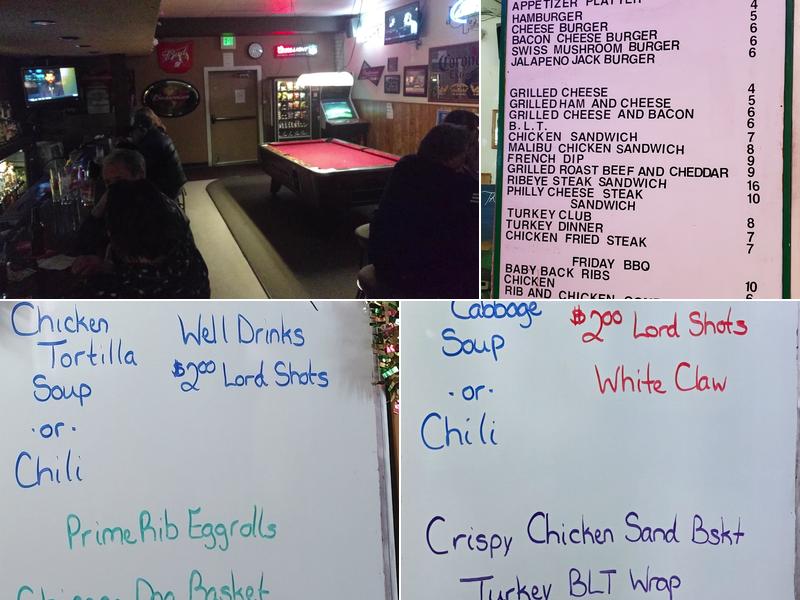 Bud
Coors LIGHT
Budweiser
Corona
APPETIZER PLATTER 4
HAMBURGER 5
CHEESE BURGER 6
BACON CHEESE BURGER 6
SWISS MUSHROOM BURGER 6
JALAPENO JACK BURGER
GRILLED CHEESE 4
GRILLED HAM AND CHEESE 5
GRILLED CHEESE AND BACON 6
B.L.T. 6
CHICKEN SANDWICH 7
MALIBU CHICKEN SANDWICH 8
FRENCH DIP 9
GRILLED ROAST BEEF AND CHEDDAR 9
RIBEYE STEAK SANDWICH 16
PHILLY CHEESE STEAK 10
SANDWICH
TURKEY CLUB 8
TURKEY DINNER 7
CHICKEN FRIED STEAK 7
FRIDAY BBQ
BABY BACK RIBS
CHICKEN 10
RIB AND CHICKEN 6
Chicken
Tortilla
Soup
·or·
Chili
Well Drinks
$2.00 Lord Shots
Prime Rib Eggrolls
Dog Basket
Cabbage
Soup
·or·
Chili
$2.00 Lord Shots
White Claw
Crispy Chicken Sand Bskt
Turkey BLT Wrap